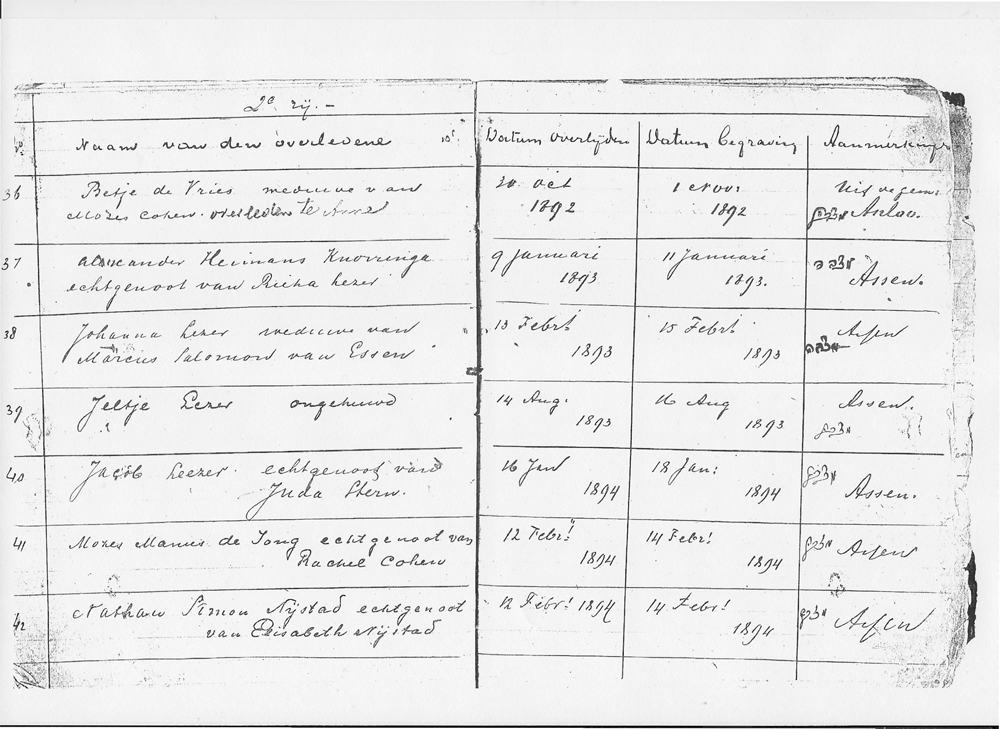 2e rij. –
No. Naam van den overledene Datum overlijden Datum begraving Aanmerking
36 Betje de Vries weduwe van 30 Oct 1 Nov: Uit de gem:
Mozes Cohen. overleden te 1892 1892 Anloo.
37 Alexander Heimans Knorringa 9 Januari 11 Januari
echtgenoot van Richa Lezer 1893 1893. Assen.
38 Johanna Lezer weduwe van 13 Febri 15 Febri Assen
Marcus Salomon van Essen 1893 1893
39 Jeltje Lezer ongehuwd 14 Aug. 16 Aug Assen.
1893 1893
40 Jacob Leezer. echtgenoot van 16 Jan 18 Jan:
Juda Stern. 1894 1894 Assen.
41 Mozes Manus de Jong echtgenoot van 12 Febr! 14 Febr! Assen
Rachel Cohen 1894 1894
42 Nathan Simon Nijstad echtgenoot 12 Febr! 1894 14 Febr! Assen
van Elisabeth Nijstad 1894